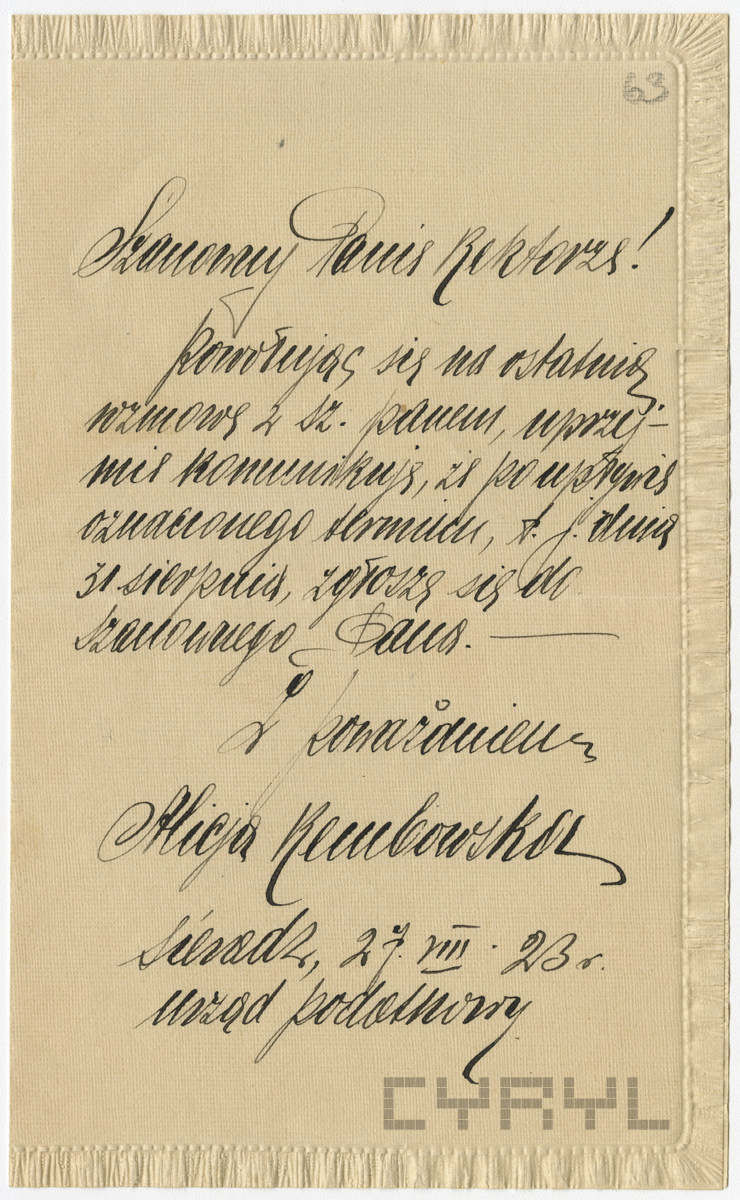 63
Szanowny Panie Rektorze!
Powołując się na ostatnią
rozmowę z Sz. Panem, uprzej-
mie komunikuję, że po upływie
oznaczonego terminu, t. j. dnia
31 sierpnia, zgłoszę się do
Szanownego Pana. —
Z poważaniem
Alicja Rembowska
Sieradz, 27. VIII. 23 r.
Urząd podatkowy
CYRYL